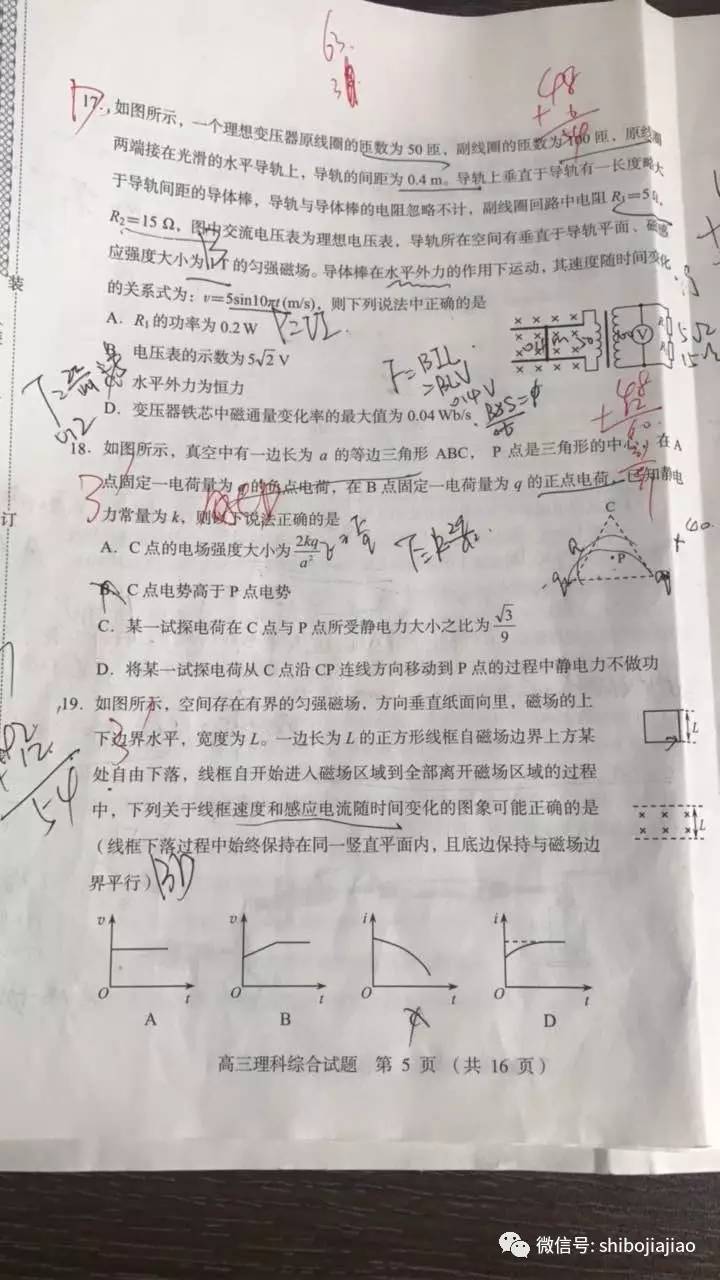 63
3
48
+ 6
17. 如图所示，一个理想变压器原线圈的匝数为 50 匝，副线圈的匝数为 100 匝、原线圈
两端接在光滑的水平导轨上，导轨的间距为 0.4 m。导轨上垂直于导轨有一长度略大
于导轨间距的导体棒，导轨与导体棒的电阻忽略不计，副线圈回路中电阻 R₁=5 Ω，
R₂=15 Ω，图中交流电压表为理想电压表，导轨所在空间有垂直于导轨平面、磁感
应强度大小为 1 T 的匀强磁场。导体棒在水平外力的作用下运动，其速度随时间变化
的关系式为：v=5sin10πt (m/s)，则下列说法中正确的是
A．R₁的功率为 0.2 W
P=UI
电压表的示数为 5√2 V
水平外力为恒力
D．变压器铁芯中磁通量变化率的最大值为 0.04 Wb/s
F=BIL
=BLV
V
5Ω
15Ω
48
12
60
18. 如图所示，真空中有一边长为 a 的等边三角形 ABC， P 点是三角形的中心，在 A
点固定一电荷量为 q 的负点电荷，在 B 点固定一电荷量为 q 的正点电荷，已知静电
力常量为 k，则以下说法正确的是
3
A．C 点的电场强度大小为 2kq/a²
B．C 点电势高于 P 点电势
C．某一试探电荷在 C 点与 P 点所受静电力大小之比为 √3/9
D．将某一试探电荷从 C 点沿 CP 连线方向移动到 P 点的过程中静电力不做功
C
P
-q
19. 如图所示，空间存在有界的匀强磁场，方向垂直纸面向里，磁场的上
下边界水平，宽度为 L。一边长为 L 的正方形线框自磁场边界上方某
处自由下落，线框自开始进入磁场区域到全部离开磁场区域的过程
中，下列关于线框速度和感应电流随时间变化的图象可能正确的是
（线框下落过程中始终保持在同一竖直平面内，且底边保持与磁场边
界平行）BD
3
12
54
L
L
v v i i
O t O t O t O t
A B D
高三理科综合试题 第 5 页 （共 16 页）
装
订
微信号: shibojiajiao